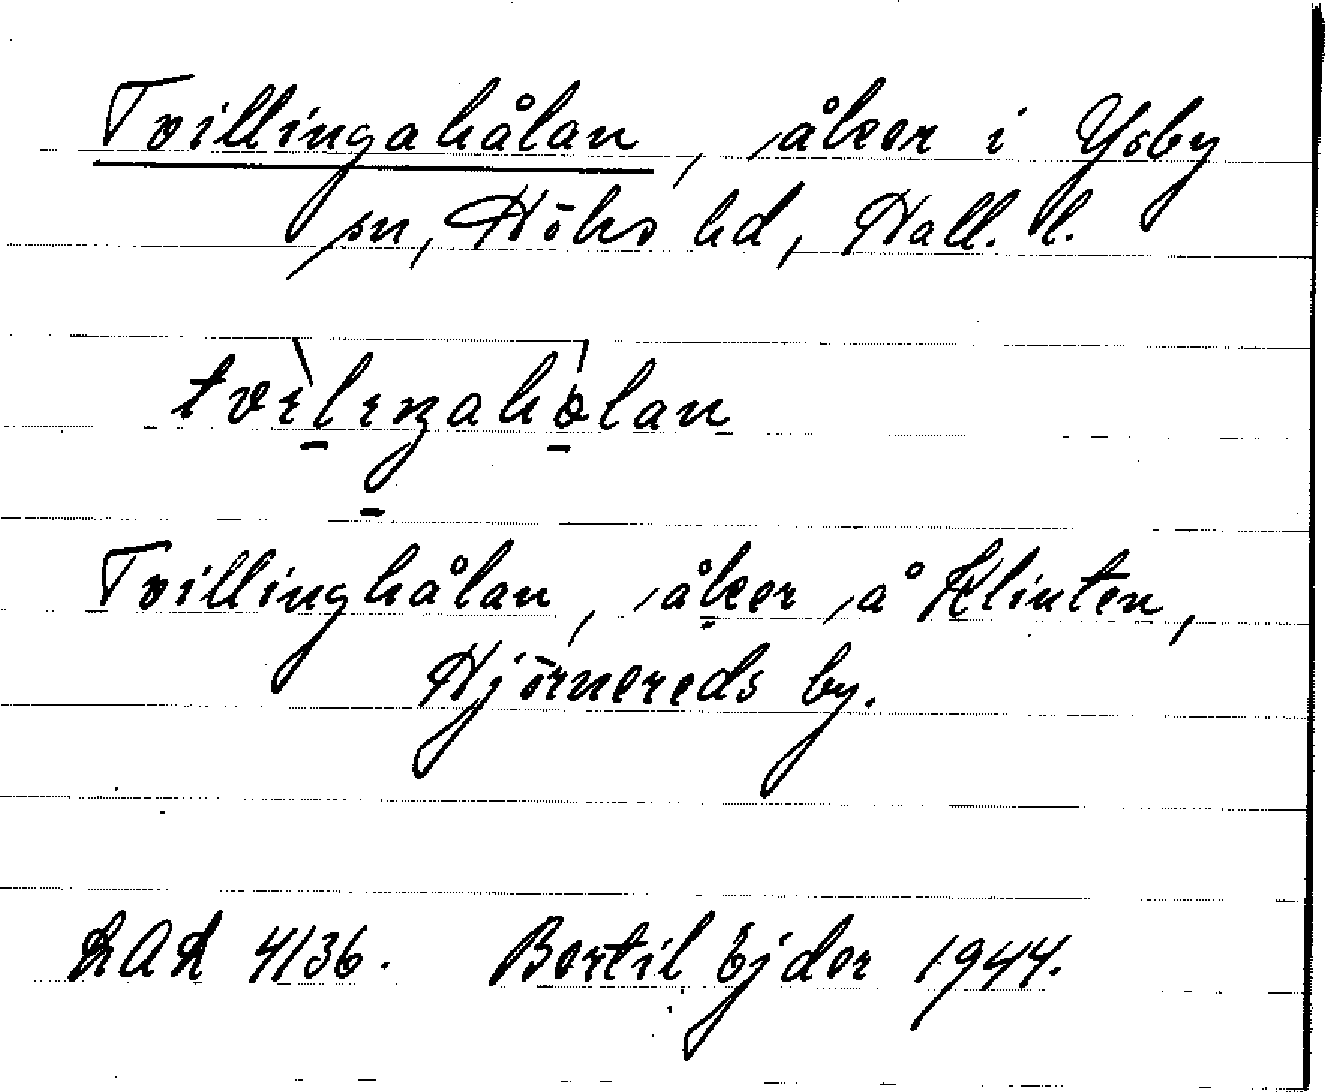 Tvillingahålan, åker i Ysby
sn, Höks hd, Hall. l.
tvìlıŋahólan
Tvillinghålan, åker å Klinten,
Hjörnereds by.
LAL 4136. Bertil Ejder 1944.